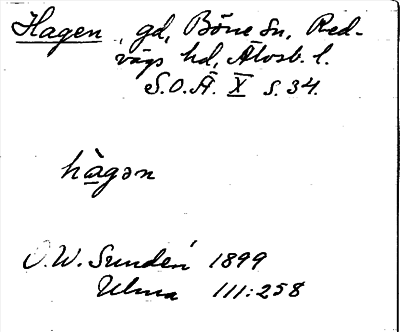 Hagen, gd, Böne sn, Red-
vägs hd, Älvsb. l.
S.O.Ä. X s. 34.
hàgən
O.W. Sundén 1899
Ulma 111:258